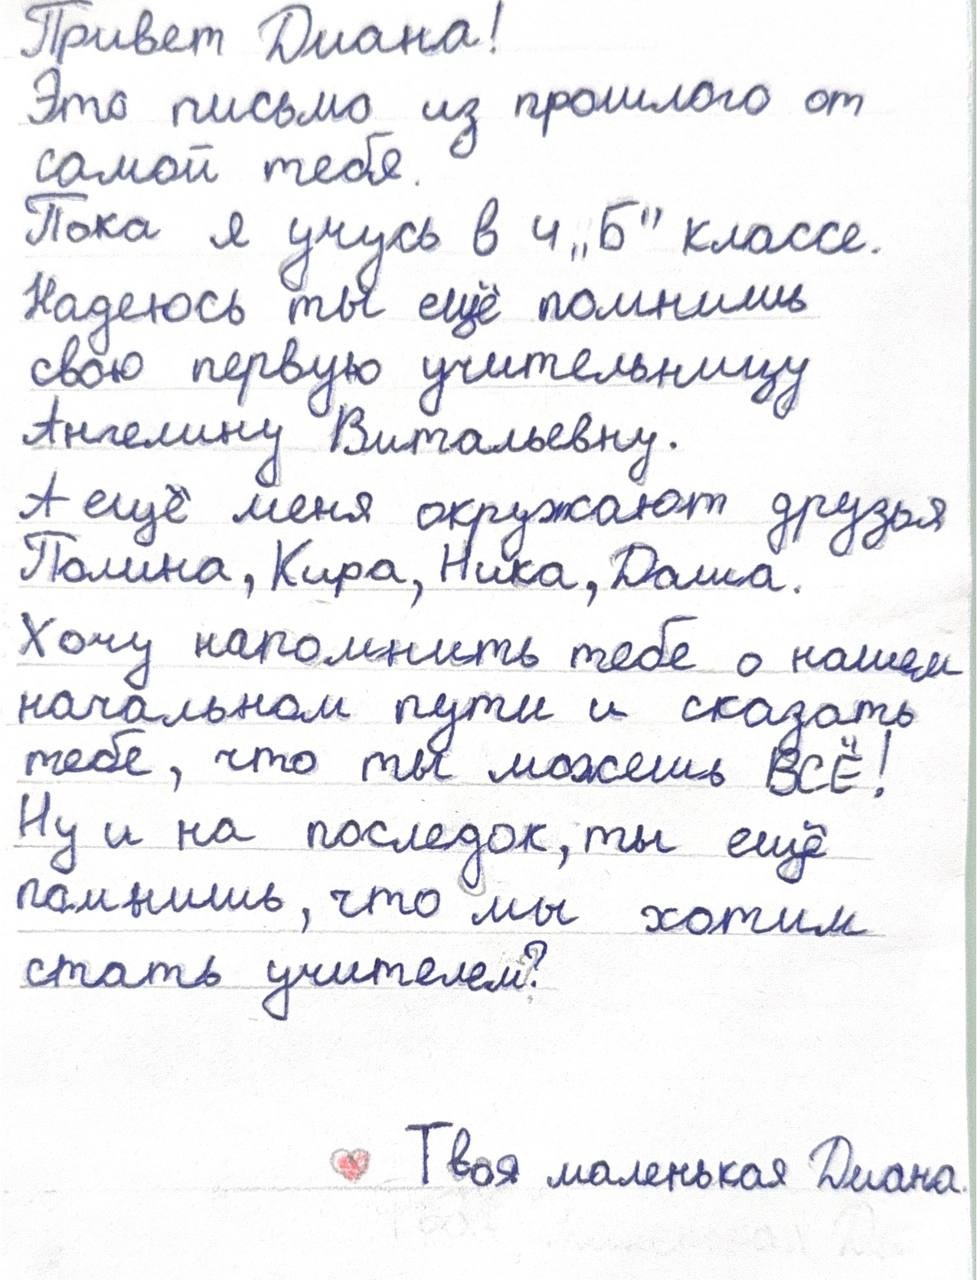 Привет Диана!
Это письмо из прошлого от
самой тебя.
Пока я учусь в 4 „Б" классе.
Надеюсь ты ещё помнишь
свою первую учительницу
Ангелину Витальевну.
А ещё меня окружают друзья
Полина, Кира, Ника, Даша.
Хочу напомнить тебе о нашем
начальном пути и сказать
тебе, что ты можешь ВСЁ!
Ну и на последок, ты ещё
помнишь, что мы хотим
стать учителем?
Твоя маленькая Диана.